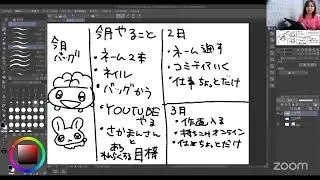 今月
バッグ
今月やること
・ネーム2本
・ネイル
・バッグかう
・YOUTUBE
やる
・さかまんさん
と
ある
目標
2日
・ネーム通す
・コミティアいく
・仕事ちょっとだけ
3月
・作画入る
・オンライン
・仕事ちょっとだけ
zoom